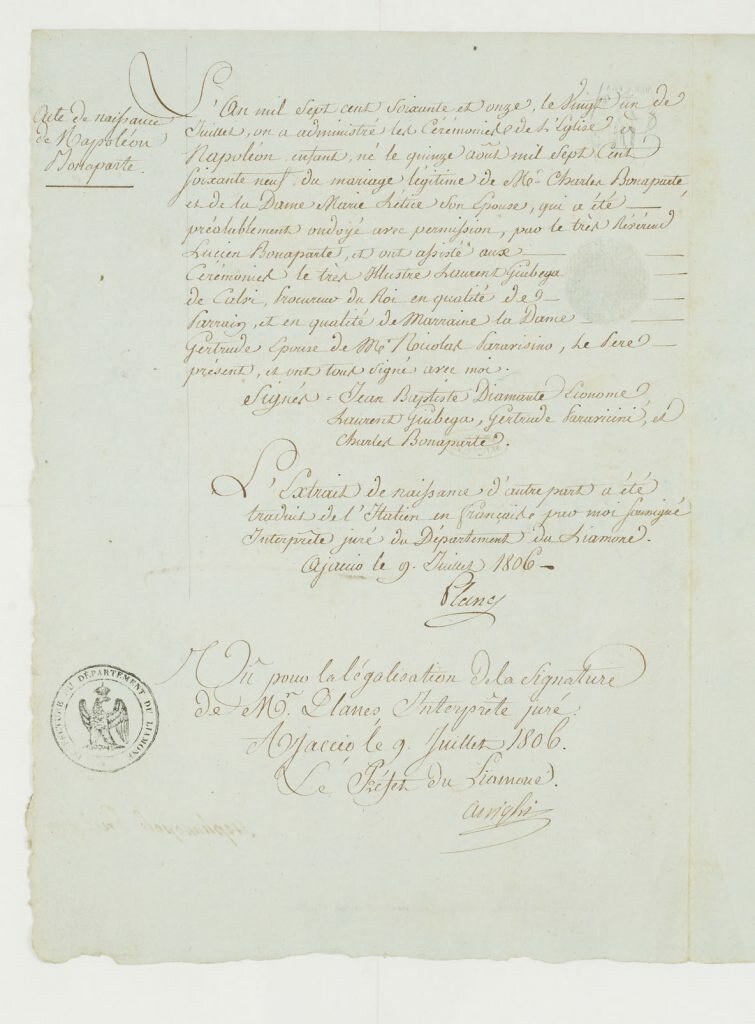 Acte de naissance
de Napoléon
Bonaparte.
L'An mil Sept cent Soixante et onze, le Vingt un de
Juillet, on a administré les Cérémonies de L'Eglise à
Napoléon, enfant, né le quinze août mil Sept Cent
Soixante neuf, du mariage légitime de Mr. Charles Bonaparte
et de la Dame Marie Létice Son Epouse, qui a été
préalablement ondoyé avec permission, par le très Révérend
Lucien Bonaparte, et ont assisté aux
Cérémonies le très Illustre Laurent Giubega
de Calvi, Procureur du Roi en qualité de
Parrain, et en qualité de Marraine la Dame
Gertrude Epouse de Mr. Nicolas Paravisino, Le Pere
présent, et ont tous signé avec moi.
Signés = Jean Baptiste Diamante Econome,
Laurent Giubega, Gertrude Paravicini, et
Charles Bonaparte.
L'Extrait de naissance d'autre part a été
traduit de l'Italien en français par moi Soussigné
Interprète juré du Département du Liamone.
Ajaccio le 9. Juillet 1806
Planes
Vu pour la légalisation de la Signature
de Mr. Planes Interprète juré.
Ajaccio le 9. Juillet 1806.
Le Préfet du Liamone.
Arrighi
PRÉFECTURE DU DÉPARTEMENT DU LIAMONE